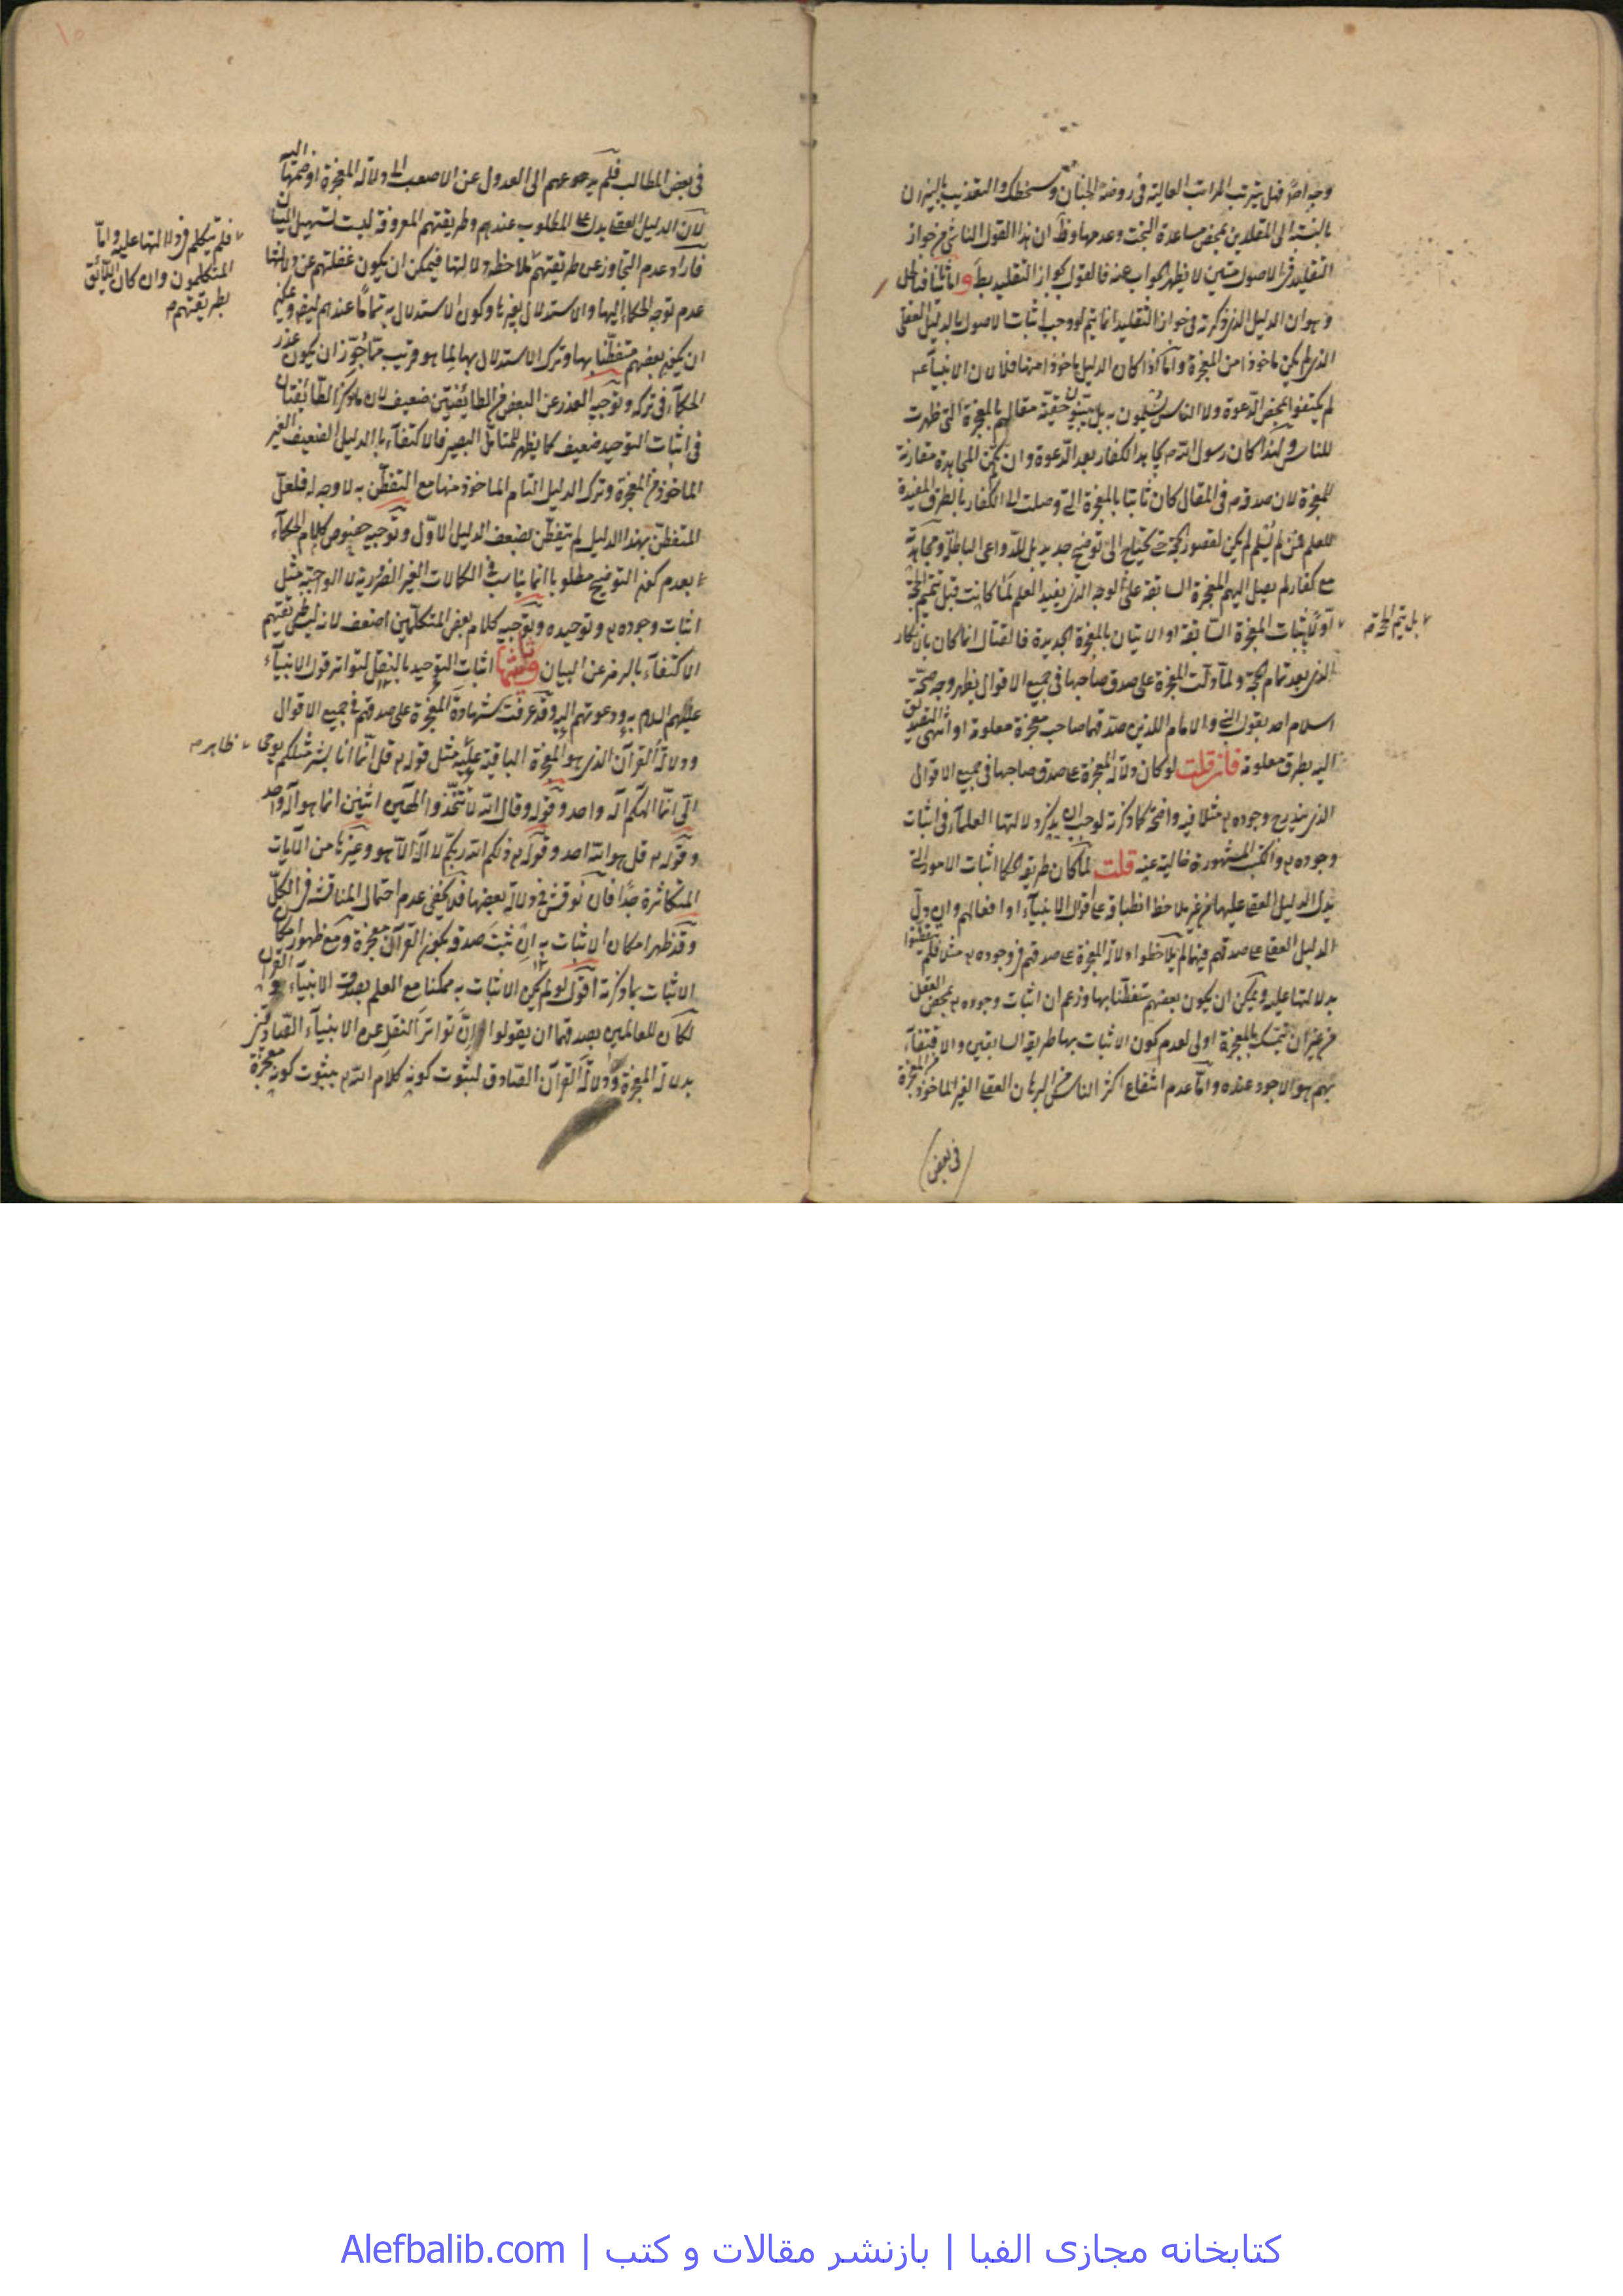 بالنسبة الى المقلدين بمحض مساعدة البخت وعدمها وظ ان هذا القول الناشي من جواز
التقليد في الاصول لا يظهر الجواب عنه فالقول بجواز التقليد بط واما ثانيا
وهو ان الدليل الذي ذكرته في جواز التقليد انما يتم لو وجب اثبات الاصول بالدليل العقلي
الذي لم يكن ماخوذا من المعجزة واما اذا كان الدليل ماخوذا منها فلا لان الانبياء
لم يكتفوا بمحض الدعوة ولا الناس يسلمون به بل يبينون حقية مقالهم بالمعجزة التي ظهرت
للناس ولهذا كان رسول الله يجاهد الكفار بعد الدعوة وان لم يكن المجاهدة مقارنة
للمعجزة لان صدقه في المقال كان ثابتا بالمعجزة التي وصلت الى الكفار بالطرق المفيدة
للعلم فمن لم يسلم لم يكن لقصور الحجة حتى يحتاج الى توضيح جديد بل للدواعي الباطلة ومجاهدته
مع كفار لم يصل اليهم المعجزة السابقة على الوجه الذي يفيد العلم لما كانت قبل تتميم الحجة
بل يتم الحجة
اولا باثبات المعجزة السابقة او الاتيان بالمعجزة الجديدة فالقتال انما كان بالانكار
الذي بعد تمام الحجة ولما دلت المعجزة على صدق صاحبها في جميع الاقوال يظهر وجه صحة
اسلام احد بقول النبي والامام اللذين صدقهما صاحب معجزة معلومة او انتهى
اليه بطرق معلومة فان قلت لو كان دلالة المعجزة على صدق صاحبها في جميع الاقوال
الذي يندرج وجوده مثلا فيه واضحة كما ذكرته لوجب ان يذكر دلالتها العلماء في اثبات
وجوده والكتب المشهورة خالية عنه قلت لما كان طريقة الحكما اثبات الامور التي
يدل الدليل العقلي عليها من غير ملاحظة انطباقه على اقوال الانبياء او افعالهم وان دل
الدليل العقلي على صدقهم فيها لم يلاحظوا دلالة المعجزة على صدقهم في وجوده مثلا فلم يتفطنوا
بدلالتها عليه ويمكن ان يكون بعضهم متفطنا بها وزعم ان اثبات وجوده بمحض العقل
من غير ان يتمسك بالمعجزة اولى لعدم كون الاثبات بها طريقة السابقين والاقتفاء
بهم هو الاجود عنده واما عدم انتفاع اكثر الناس من البرهان العقلي الغير الماخوذ من المعجزة
في بعض
في بعض المطالب فلم يدعوهم الى العدول عن الاصعب الى دلالة المعجزة او ضمها اليه
لان الدليل العقلي يدل على المطلوب عندهم وطريقتهم المعروفة ليست تسهيل البيان
فارادة عدم التجاوز عن طريقتهم ملاحظة دلالتها فيمكن ان يكون غفلتهم عن دلالتها
فلم يتكلم في دلالتها عليه واما
المتكلمون وان كان اللائق
بطريقتهم
عدم توجه الحكماء اليها والاستدلال بغيرها وكون الاستدلال به تماما عندهم
ان يكون بعضهم متفطنا بها وترك الاستدلال بها لما هو قريب مما جوز ان يكون عذر
الحكماء في تركه وتوجيه العذر عن البعض من الطائفتين ضعيف لان ما ذكره الطائفتان
في اثبات التوحيد ضعيف كما يظهر للمتامل البصير فالاكتفاء بالدليل الضعيف الغير
الماخوذ من المعجزة وترك الدليل التام الماخوذ منها مع التفطن به لا وجه له فلعل
المتفطن بهذا الدليل لم يتفطن بضعف الدليل الاول وتوجيه خصوص كلام الحكماء
بعدم كون التوضيح مطلوبا انما يناسب في الكمالات الغير الضرورية لا الواجبة مثل
اثبات وجوده وتوحيده وتوجيه كلام بعض المتكلمين اضعف لانه ليس طريقتهم
الاكتفاء بالرمز عن البيان وثالثها اثبات التوحيد بالنقل لتواتر قول الانبياء
عليهم السلام به ودعوتهم اليه وقد عرفت شهادة المعجزة على صدقهم في جميع الاقوال
ودلالة القرآن الذي هو المعجزة الباقية عليه مثل قوله قل انما انا بشر مثلكم يوحى
ظاهر
الي انما الهكم اله واحد وقوله وقال الله لا تتخذوا الهين اثنين انما هو اله واحد
وقوله قل هو الله احد وقوله ذلكم الله ربكم لا اله الا هو وغيرها من الآيات
المتكاثرة جدا فان نوقش في دلالة بعضها فلا يخفى عدم احتمال المناقشة في الكل
وقد ظهر امكان الاثبات به ان ثبت صدقه بكون القرآن معجزة ومع ظهور امكان
الاثبات بما ذكرته اقول لو لم يكن الاثبات به ممكنا مع العلم بصدق الانبياء والقرآن
لكان للعالمين بصدقهما ان يقولوا ان تواتر النقل عن الانبياء الصادقين
بدلالة المعجزة ودلالة القرآن الصادق لثبوت كونه كلام الله بثبوت كونه معجزة
کتابخانه مجازی الفبا | بازنشر مقالات و کتب | Alefbalib.com